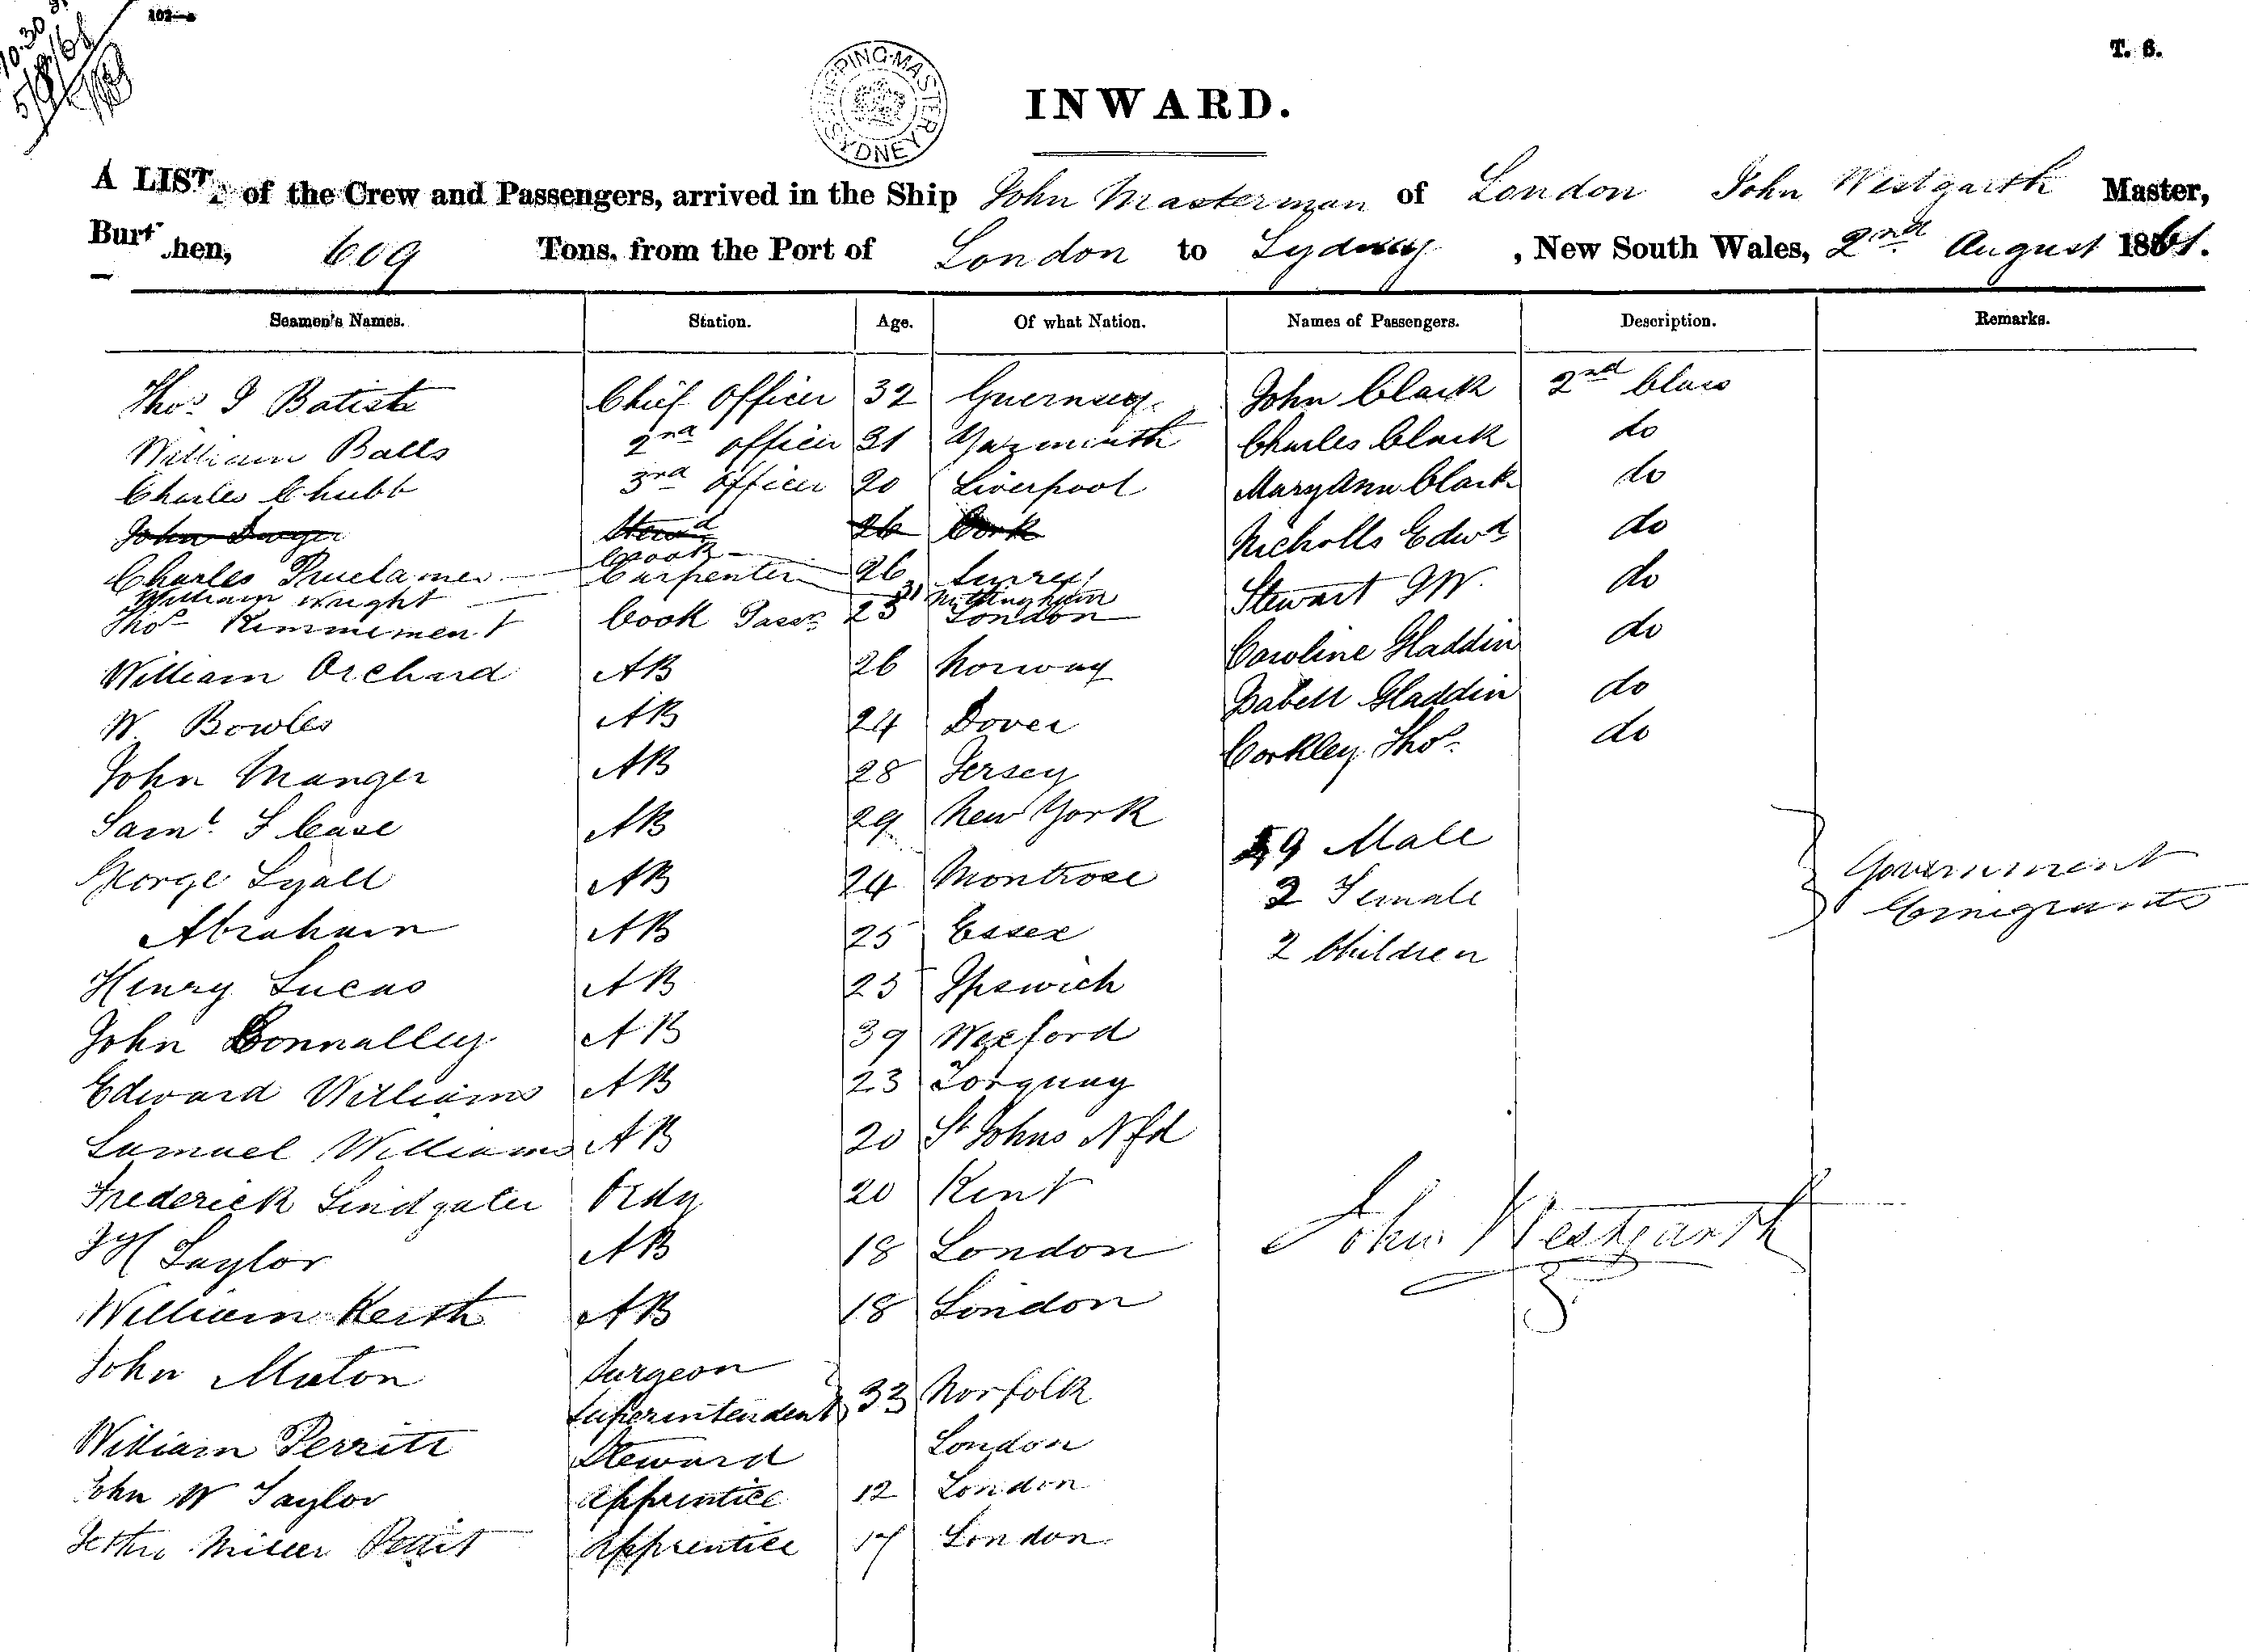 102—a
10.30
5/8/61
T. 6.
SHIPPING MASTER SYDNEY
INWARD.
A LIST of the Crew and Passengers, arrived in the Ship John Masterman of London John Westgarth Master,
Burthen, 609 Tons, from the Port of London to Sydney, New South Wales, 2nd August 1861.
Seamen's Names. Station. Age. Of what Nation. Names of Passengers. Description. Remarks.
Thos J Batiste Chief Officer 32 Guernsey John Clark 2nd Class
William Balls 2nd Officer 21 Yarmouth Charles Clark do
Charles Chubb 3rd Officer 20 Liverpool Mary Ann Clark do
John Dwyer Stewd 26 Cork Nicholls Edwd do
Cook
Charles Carpenter 26 Surrey Stewart do
William Wright 21 Nottingham
Thos Cook Passr 23 London Caroline Gladdin do
William Orchard AB 26 Norway Isabell Gladdin do
W Bowles AB 24 Dover Corkley Thos do
John Manger AB 28 Jersey
Saml F Case AB 29 New York 59 Male
George Lyall AB 24 Montrose 2 Female Government
Abraham AB 25 Essex 2 Children Emigrants
Henry Lucas AB 25 Ipswich
John Connalley AB 39 Wexford
Edward Williams AB 23 Torquay
Samuel Williams AB 20 St Johns Nfd
Frederick Lindgater Ordy 20 Kent
Taylor AB 18 London John Westgarth
William Keith AB 18 London
John Muton Surgeon
Superintendent 33 Norfolk
William Perritt Steward London
John W Taylor Apprentice 12 London
Miller Pettit Apprentice 17 London